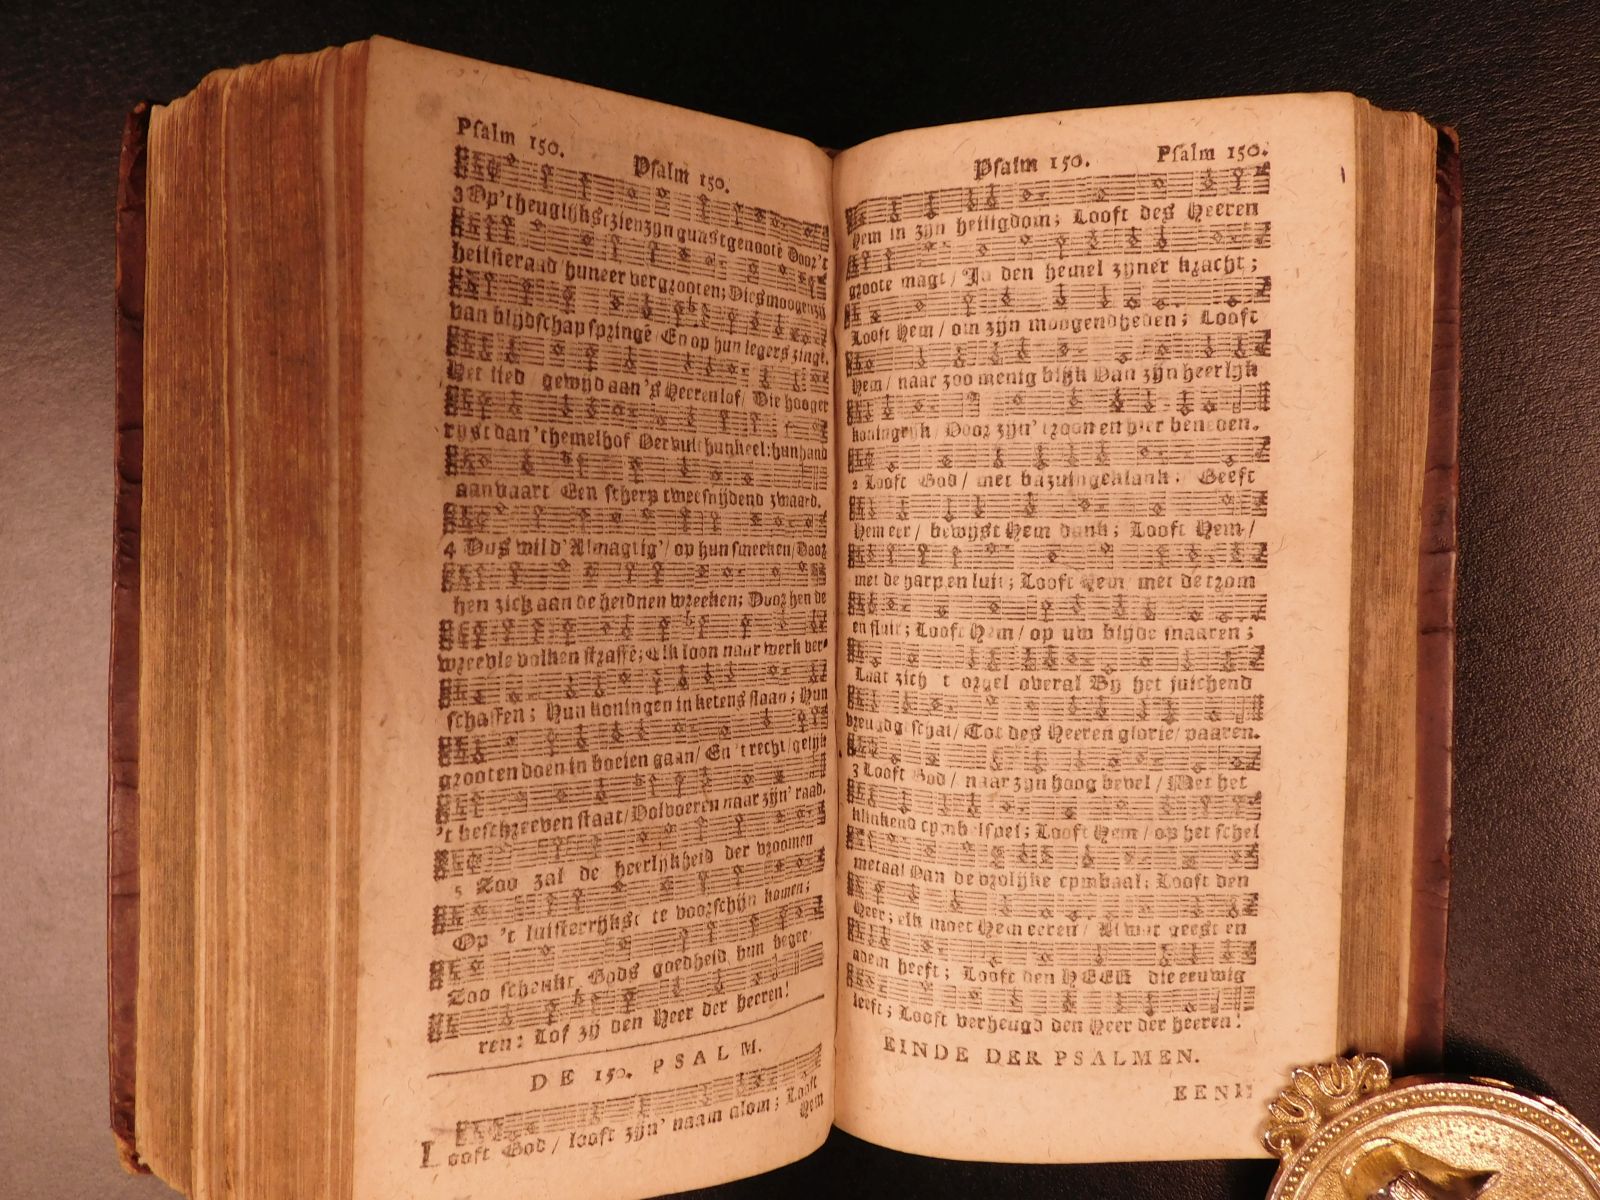 Psalm 150. Psalm 150.
3 Op 't heuglijkst zien zyn gunstgenoote Door 't
heilsieraad / hun eer vergrooten; Dies moogen zij
van blijdschap springē En op hun legers zingē.
Het lied / gewijd aan 's Heeren lof / Die hooger
ryst dan 't hemelhof Vervult hun keel: hun hand
aanvaart Een scherp tweesnijdend zwaard.
4 Dus wild' Almagtig' / op hun smeeken / Door
hen zich aan de heidnen wreeken; Door hen de
wreevle volken straffē; Elk loon naar werk ver-
schaffen; Hun koningen in ketens slaan; Hun
grooten doen in boeien gaan / En 't recht / gelijk
't beschreeven staat / Volvoeren naar zijn' raad.
5 Zoo zal de heerlijkheid der vroomen
Op 't luisterrijkst te voorschijn komen;
Zoo schenkt Gods goedheid hun begee-
ren: Lof zij den Heer der heeren!
DE 150. PSALM.
Looft God / looft zijn' naam alom; Looft
Hem
Psalm 150. Psalm 150.
Hem in zijn heiligdom; Looft des Heeren
groote magt / In den hemel zijner kracht;
Looft Hem / om zijn moogendheden; Looft
Hem / naar zoo menig blijk Van zijn heerlijk
koningrijk / Voor zijn' troon en hier beneden.
2 Looft God / met bazuingeklank: Geeft
Hem eer / bewijst Hem dank; Looft Hem /
met de harp en luit; Looft Hem / met de trom
en fluit; Looft Hem / op uw blijde snaaren;
Laat zich 't orgel overal By het juichend
vreugdgeschal / Tot des Heeren glorie / paaren.
3 Looft God / naar zyn hoog bevel / Met het
klinkend cymbelspel; Looft Hem / op het schel
metaal Van de vrolijke cymbaal; Looft den
Heer; elk moet Hem eeren / Al wat geest en
adem heeft; Looft den HEER die eeuwig
leeft; Looft verheugd den Heer der heeren!
EINDE DER PSALMEN.